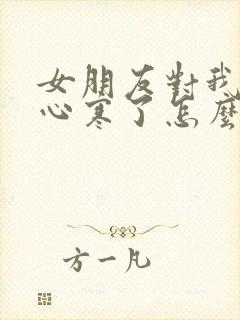 女朋友對我
心寒了怎麼
方一凡